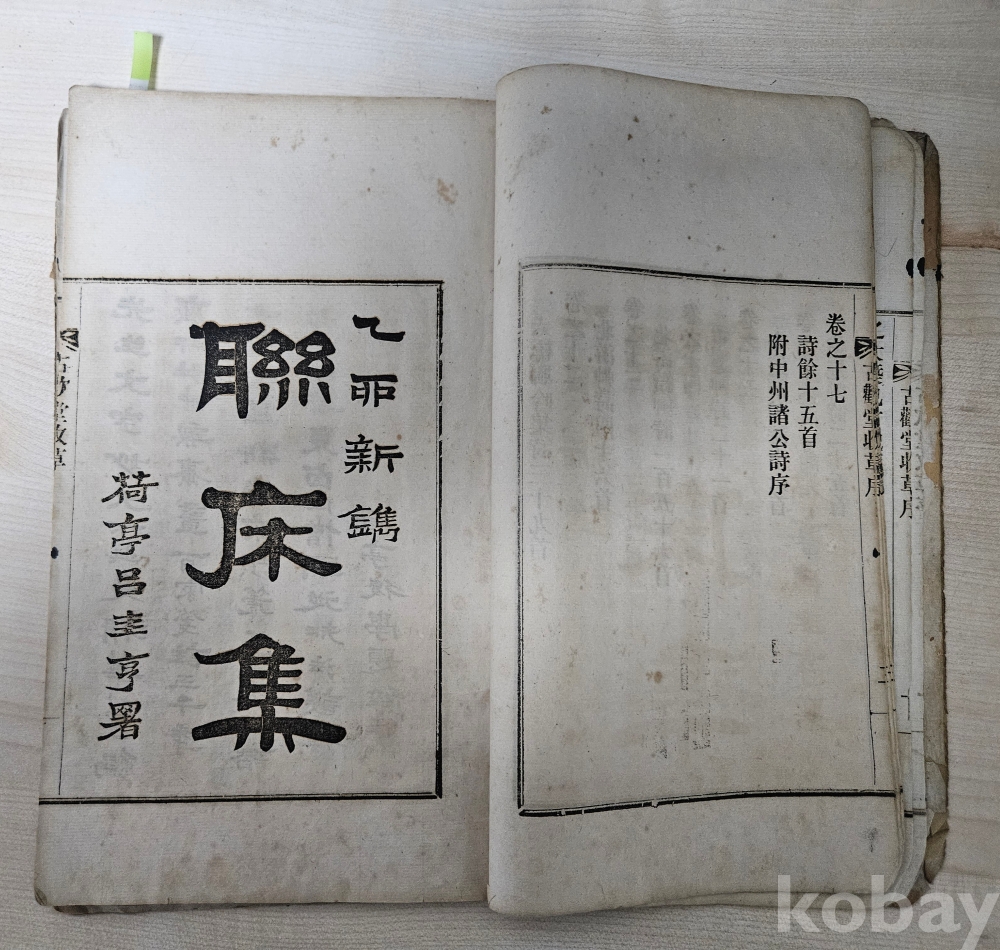 古歡堂收草序
古歡堂收草序
卷之十七
詩餘十五首
附中州諸公詩序
乙丣新鐫
聯床集
荷亭呂圭亨署
kobay